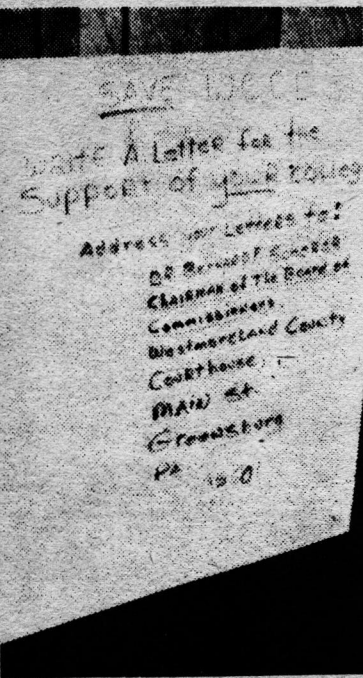 SAVE WCCC
WRITE A Letter for the
Support of your
Address your Letters to:
DR
Chairman of The Board of
Commissioners
Westmoreland County
Courthouse
MAIN St.
Greensburg
PA